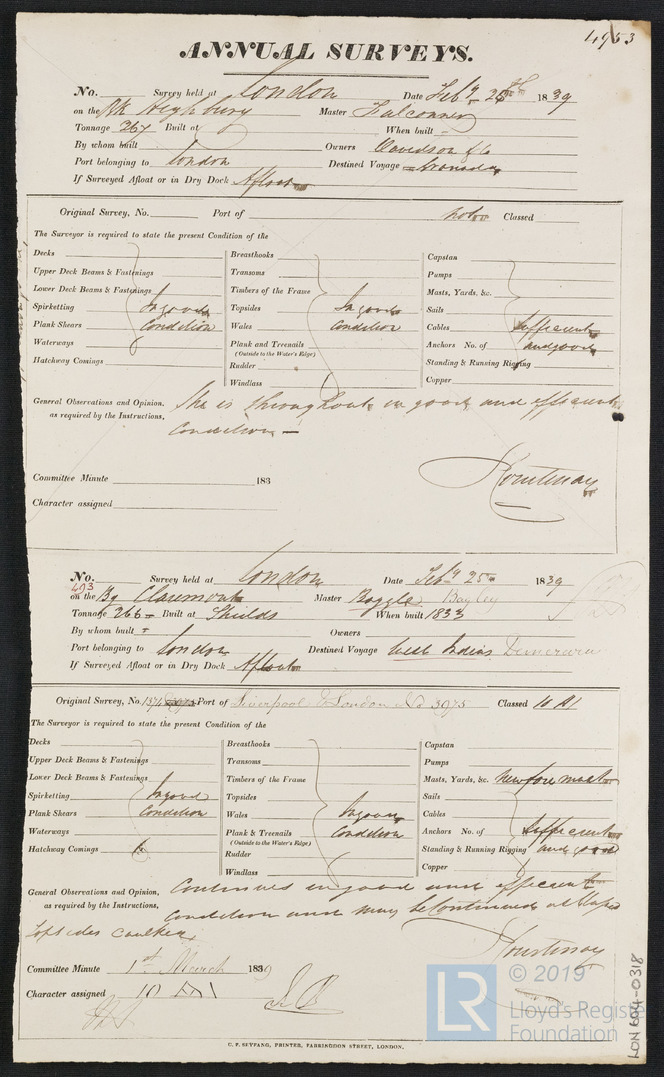 4953
ANNUAL SURVEYS.
No. Survey held at London Date Feby 25th 1839
on the Bk Highbury Master Falconner
Tonnage 267 Built at When built -
By whom built Owners Davidson & Co
Port belonging to London Destined Voyage
If Surveyed Afloat or in Dry Dock Afloat
Original Survey, No. Port of Classed
The Surveyor is required to state the present Condition of the
Decks
Upper Deck Beams & Fastenings
Lower Deck Beams & Fastenings
Spirketting In good
Plank Shears Condition
Waterways
Hatchway Comings
Breasthooks
Transoms
Timbers of the Frame
Topsides In good
Wales Condition
Plank and Treenails
(Outside to the Water's Edge)
Rudder
Windlass
Capstan
Pumps
Masts, Yards, &c.
Sails
Cables Sufficient
Anchors No. of and good
Standing & Running Rigging
Copper
General Observations and Opinion, She is throughout in good and efficient
as required by the Instructions, Condition -
Courtenay
Committee Minute 183
Character assigned
No. Survey held at London Date Feby 25th 1839
493
on the Bg Claremont Master Boggle Bayley
Tonnage 266 Built at Shields When built 1833
By whom built Owners
Port belonging to London Destined Voyage West Indies Demerara
If Surveyed Afloat or in Dry Dock Afloat
Original Survey, No. Port of Liverpool & London No 3975 Classed 10 A1
The Surveyor is required to state the present Condition of the
Decks
Upper Deck Beams & Fastenings
Lower Deck Beams & Fastenings
Spirketting In good
Plank Shears Condition
Waterways
Hatchway Comings
Breasthooks
Transoms
Timbers of the Frame
Topsides
Wales In good
Plank & Treenails Condition
(Outside to the Water's Edge)
Rudder
Windlass
Capstan
Pumps
Masts, Yards, &c. New fore mast
Sails
Cables
Anchors No. of Sufficient
Standing & Running Rigging and good
Copper
General Observations and Opinion, Continues in good and efficient
as required by the Instructions, Condition and may be Continued as
Topsides Caulked
Courtenay
Committee Minute 1st March 1839
Character assigned 10 A1
LR © 2019
Lloyd's Register
Foundation
LON 604-0318
C. F. SEYFANG, PRINTER, FARRINGDON STREET, LONDON.